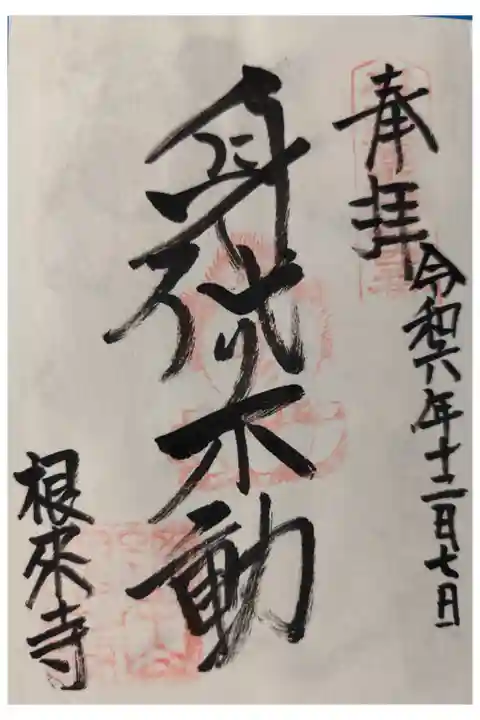 奉拝
令和六年十二月七日
身代不動
根來寺